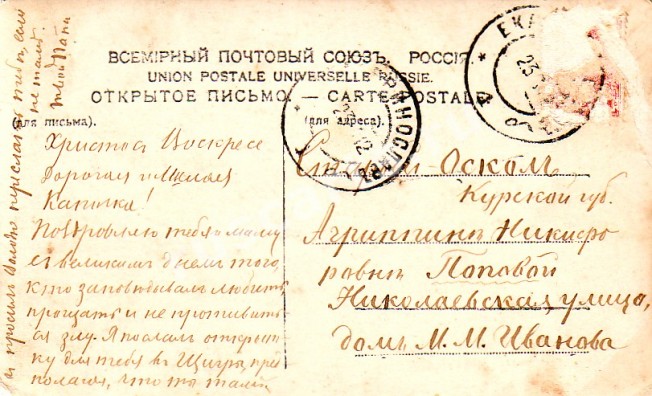 ВСЕМІРНЫЙ ПОЧТОВЫЙ СОЮЗЪ. РОССІЯ.
UNION POSTALE UNIVERSELLE RUSSIE.
ОТКРЫТОЕ ПИСЬМО. — CARTE POSTALE
(для письма).
(для адреса).
Христосъ Воскресе
дорогая и милая
Капочка!
Поздровляю тебя и маму
съ великимъ днемъ того,
кто заповѣдывалъ любить
прощать и не противить
ся злу. Я послалъ открыт
ку для тебя въ Щигры, пред
полагая, что ты тамъ
и просилъ переслать тебѣ, если
не тамъ.
твой Папа
Старый-Оскол
Курской губ.
Агриппинѣ Никифо
ровнѣ Поповой
Николаевская улица,
домъ М. М. Иванова
ЕКА
23